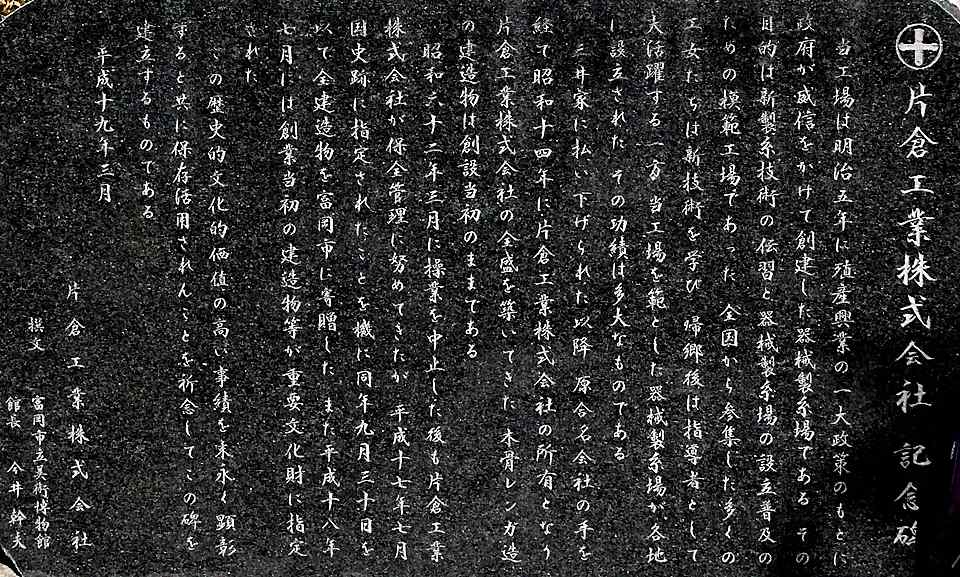 片倉工業株式会社 記念碑
当工場は明治五年に殖産興業の一大政策のもとに
政府が威信をかけて創建した器械製糸場である その
目的は新製糸技術の伝習と器械製糸場の設立普及の
ための模範工場であった 全国から参集した多くの
工女たちは新技術を学び 帰郷後は指導者として
大活躍する一方 当工場を範とした器械製糸場が各地
に設立された その功績は多大なものである
三井家に払い下げられた以降 原合名会社の手を
経て昭和十四年に片倉工業株式会社の所有となり
片倉工業株式会社の全盛を築いてきた 木骨レンガ造
の建造物は創設当初のままである
昭和六十二年三月に操業を中止した後も片倉工業
株式会社が保全管理に努めてきたが 平成十七年七月
国史跡に指定されたことを機に同年九月三十日を
以て全建造物を富岡市に寄贈した また平成十八年
七月には創業当初の建造物等が重要文化財に指定
された
この歴史的文化的価値の高い事績を末永く顕彰
すると共に保存活用されんことを祈念してこの碑を
建立するものである
平成十九年三月
片倉工業株式会社
撰文 富岡市立美術博物館
館長 今井幹夫